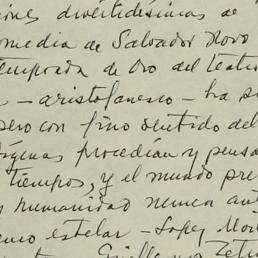 iones divertidísimas de
omedia de Salvador Novo
temporada de Oro del teatro
- aristofanesco - ha
pero con fino sentido del
procedían y pensa
tiempos, y el mundo pre
y humanidad nunca
estelar - Lopez
Guillermo